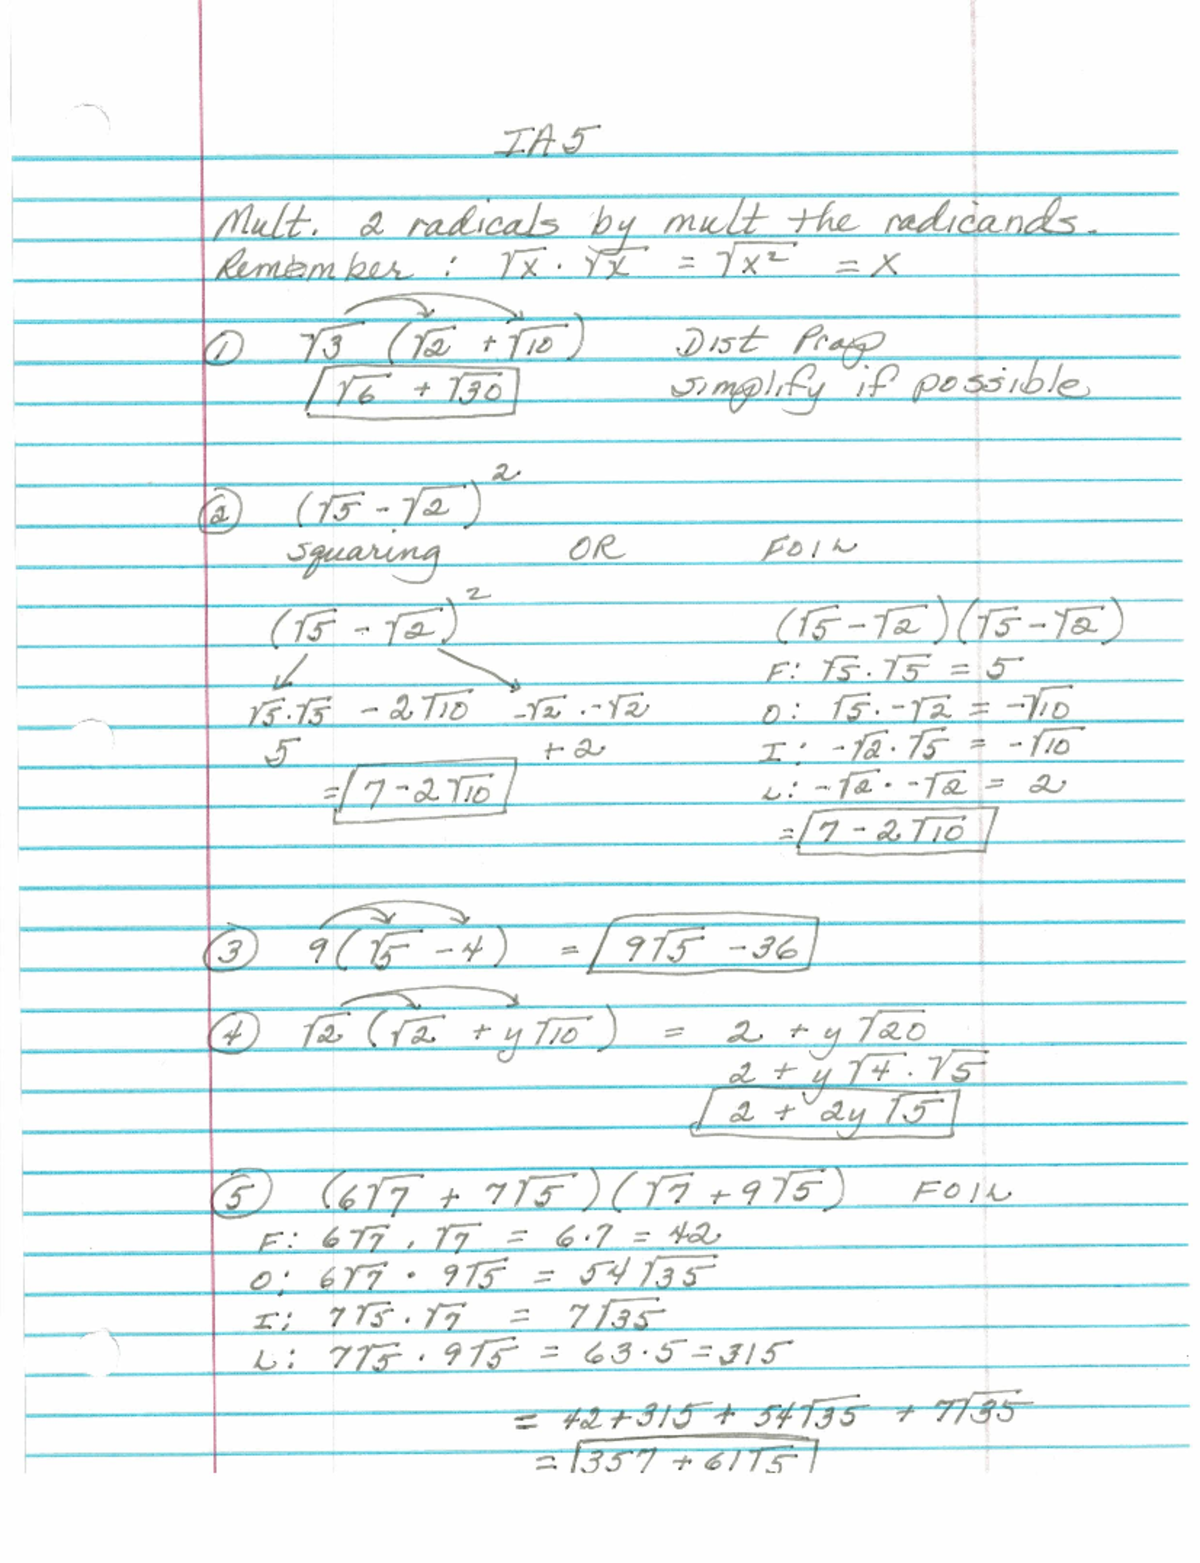 IA5
Mult. 2 radicals by mult the radicands.
Remember : √x · √x = √x² = x
① √3 (√2 + √10) Dist Prop
√6 + √30 simplify if possible
② (√5 - √2)²
squaring OR FOIL
(√5 - √2)² (√5 - √2)(√5 - √2)
F: √5 · √5 = 5
√5·√5 - 2√10 -√2 · -√2 O: √5 · -√2 = -√10
5 + 2 I: -√2 · √5 = -√10
= 7 - 2√10 L: -√2 · -√2 = 2
= 7 - 2√10
③ 9(√5 - 4) = 9√5 - 36
④ √2 (√2 + y√10) = 2 + y√20
2 + y√4 · √5
2 + 2y√5
⑤ (6√7 + 7√5)(√7 + 9√5) FOIL
F: 6√7 · √7 = 6·7 = 42
O: 6√7 · 9√5 = 54√35
I: 7√5 · √7 = 7√35
L: 7√5 · 9√5 = 63·5 = 315
= 42 + 315 + 54√35 + 7√35
= 357 + 61√5